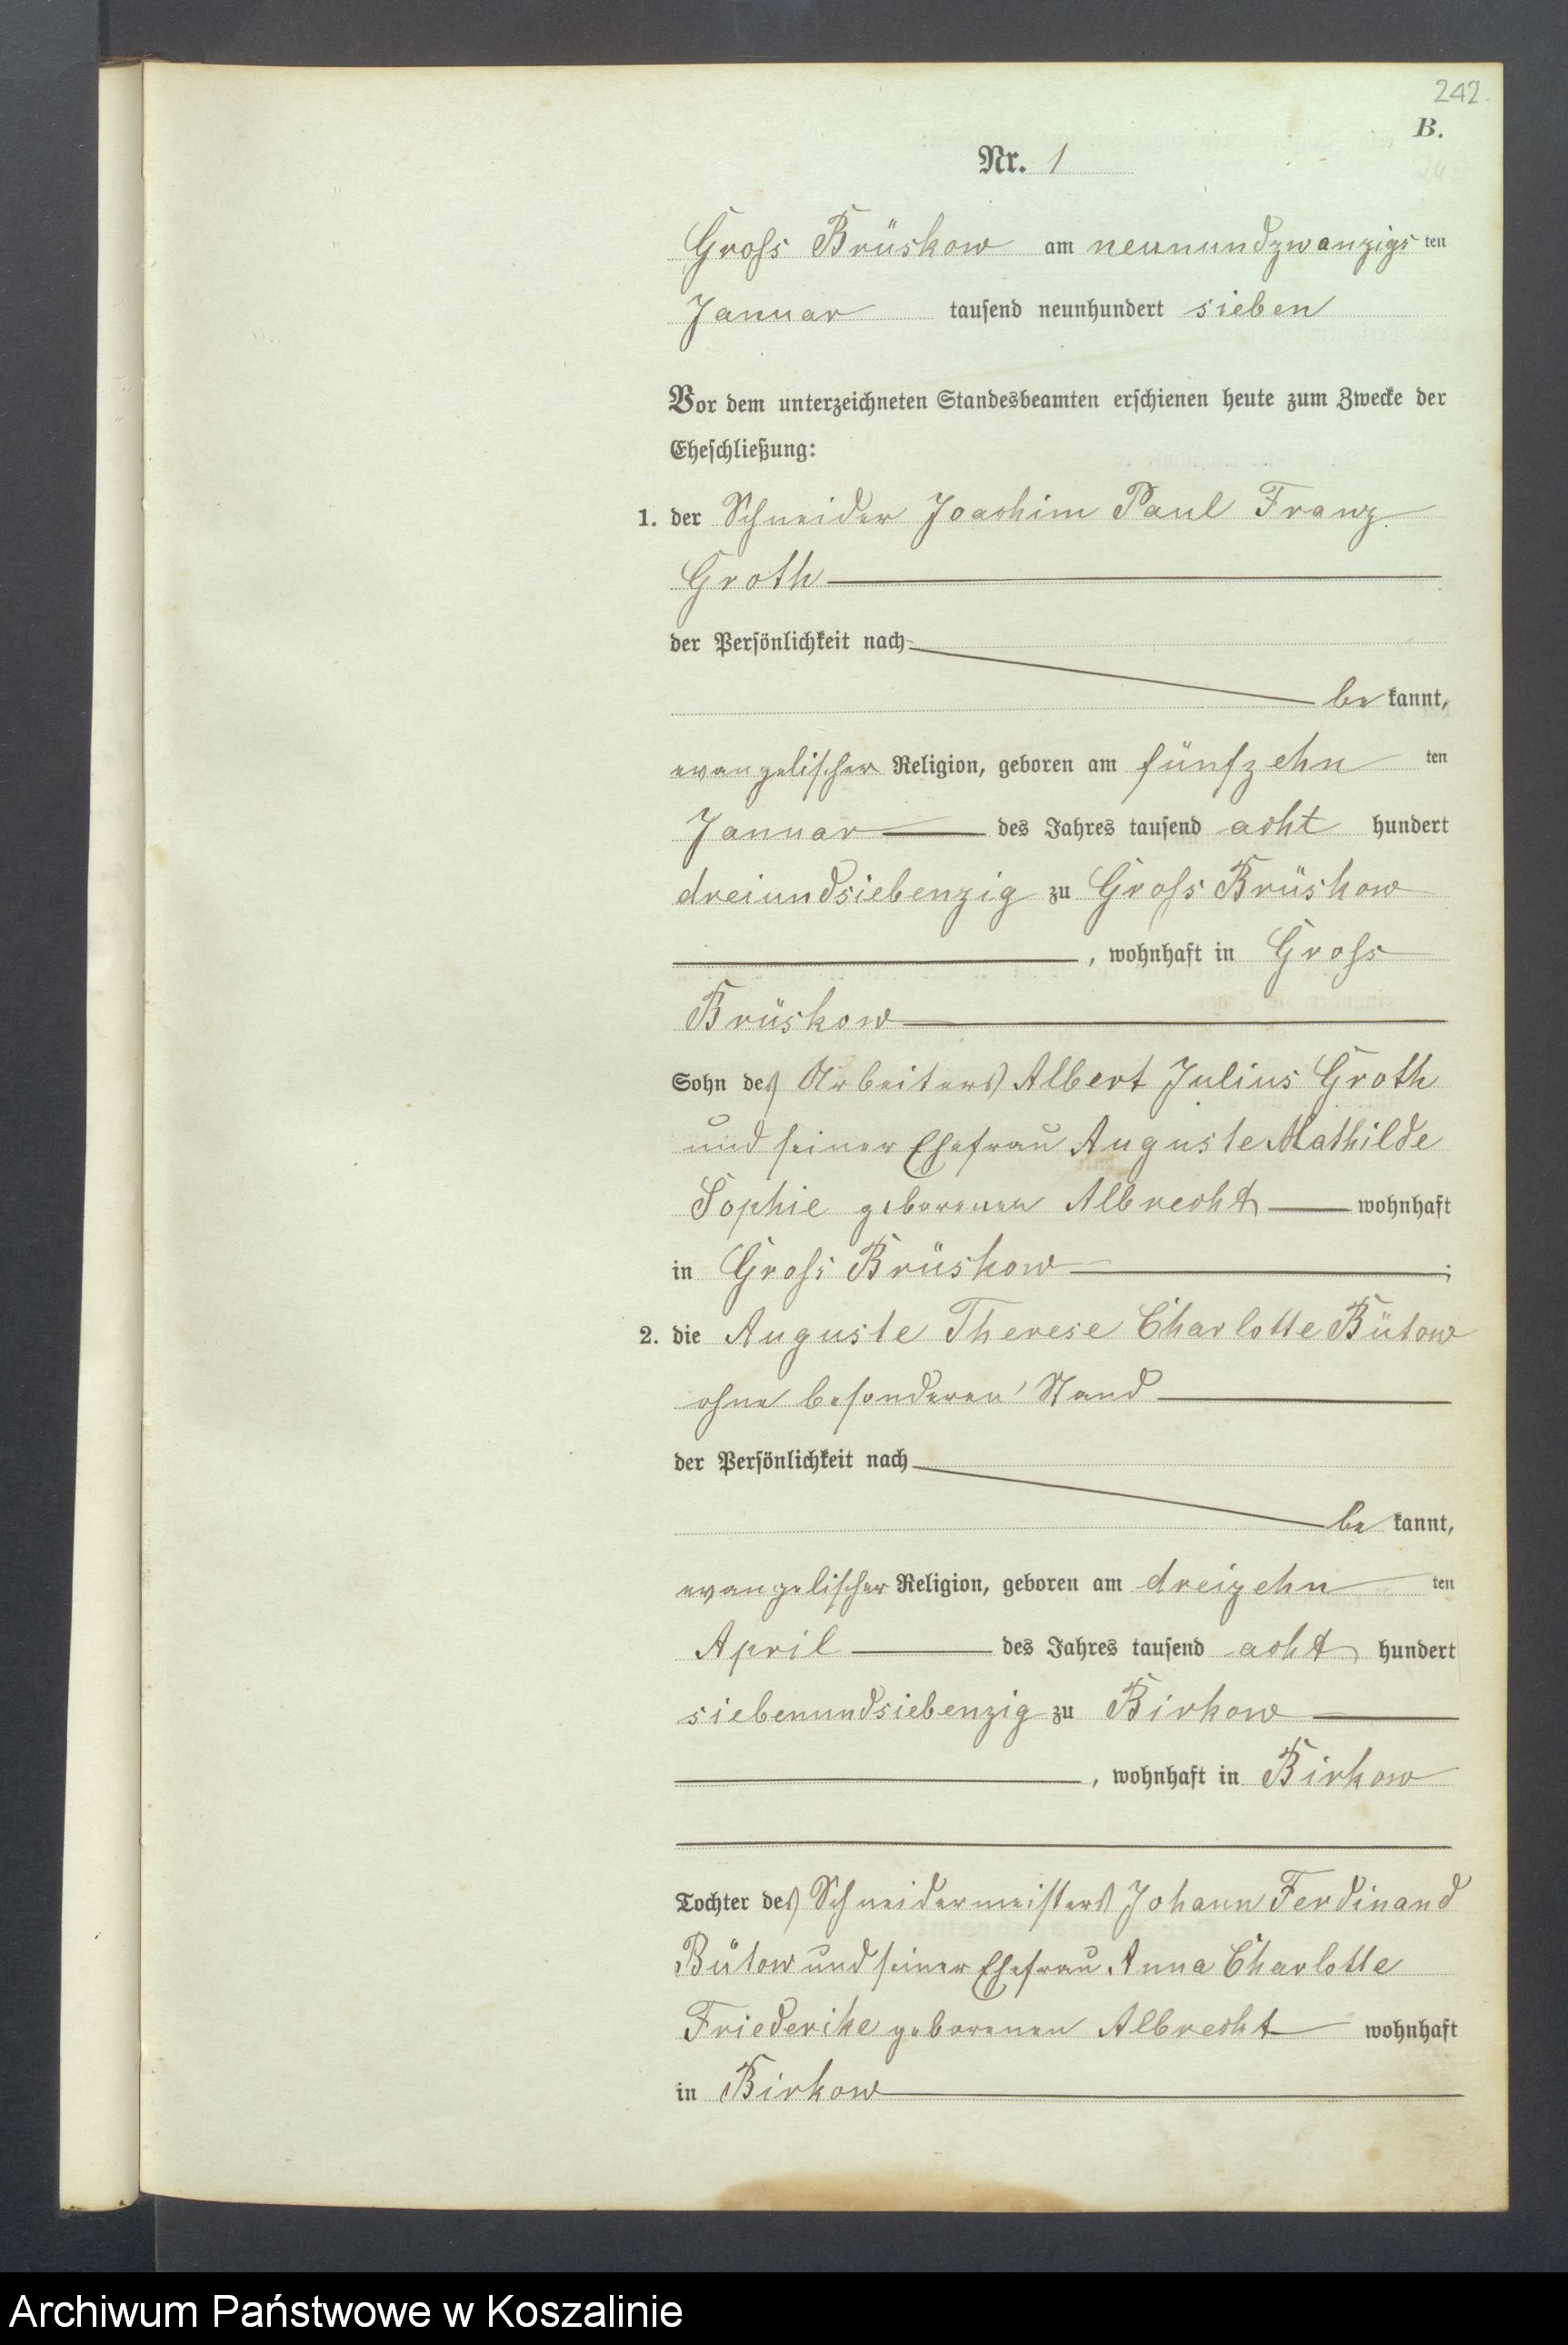 242.
B.
Nr. 1
Gross Brüskow am neunundzwanzigsten
Januar tausend neunhundert sieben
Vor dem unterzeichneten Standesbeamten erschienen heute zum Zwecke der
Eheschließung:
1. der Schneider Joachim Paul Franz
Groth
der Persönlichkeit nach
be kannt,
evangelischer Religion, geboren am fünfzehn ten
Januar des Jahres tausend acht hundert
dreiundsiebenzig zu Gross Brüskow
, wohnhaft in Gross
Brüskow
Sohn des Arbeiters Albert Julius Groth
und seiner Ehefrau Auguste Mathilde
Sophie geborenen Albrecht wohnhaft
in Gross Brüskow ;
2. die Auguste Therese Charlotte Bütow
ohne besonderen Stand
der Persönlichkeit nach
be kannt,
evangelischer Religion, geboren am dreizehn ten
April des Jahres tausend acht hundert
siebenundsiebenzig zu Birkow
, wohnhaft in Birkow
Tochter des Schneidermeisters Johann Ferdinand
Bütow und seiner Ehefrau Anna Charlotte
Friederike geborenen Albrecht wohnhaft
in Birkow
Archiwum Państwowe w Koszalinie